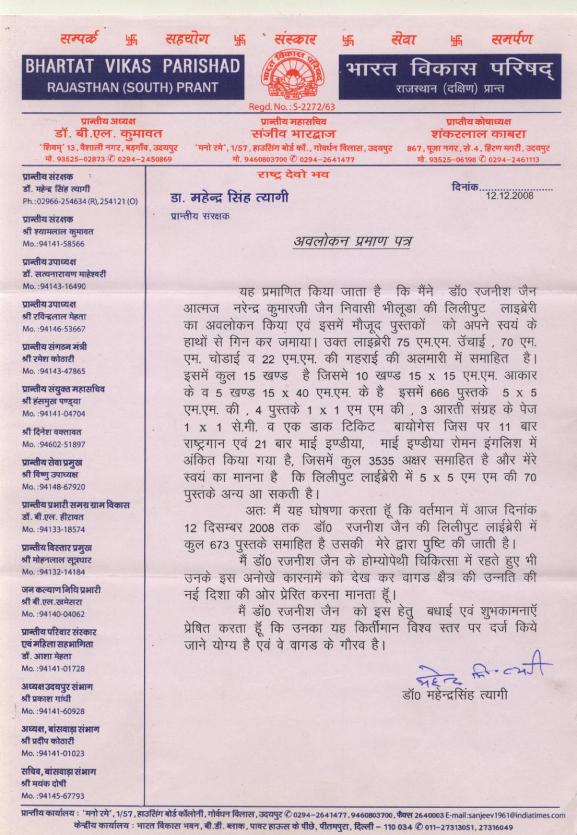 सम्पर्क 卐 सहयोग 卐 संस्कार 卐 सेवा 卐 समर्पण
BHARTAT VIKAS PARISHAD
RAJASTHAN (SOUTH) PRANT
भारत विकास परिषद्
Regd.No.: S-2272/63
भारत विकास परिषद्
राजस्थान (दक्षिण) प्रान्त
प्रान्तीय अध्यक्ष
डॉ. बी.एल. कुमावत
'शिवम्' 13, वैशाली नगर, बड़गाँव, उदयपुर
मो. 93525-02873 ✆ 0294-2450869
प्रान्तीय महासचिव
संजीव भारद्वाज
'मनो रमे', 1/57, हाउसिंग बोर्ड कॉ., गोवर्धन विलास, उदयपुर
मो. 9460803700 ✆ 0294-2641477
प्राप्तीय कोषाध्यक्ष
शंकरलाल काबरा
867, पूजा नगर, से.4, हिरण मगरी, उदयपुर
मो. 93525-06198 ✆ 0294-2461113
राष्ट्र देवो भव
प्रान्तीय संरक्षक
डॉ. महेन्द्र सिंह त्यागी
Ph.:02966-254634 (R), 254121 (O)
प्रान्तीय संरक्षक
श्री श्यामलाल कुमावत
Mo.:94141-58566
प्रान्तीय उपाध्यक्ष
डॉ. सत्यनारायण माहेश्वरी
Mo.:94143-16490
प्रान्तीय उपाध्यक्ष
श्री रविन्द्रलाल मेहता
Mo.:94146-53667
प्रान्तीय संगठन मंत्री
श्री रमेश कोठारी
Mo.:94143-47865
प्रान्तीय संयुक्त महासचिव
श्री हंसमुख पण्ड्या
Mo.:94141-04704
श्री दिनेश वक्तावत
Mo.:94602-51897
प्रान्तीय सेवा प्रमुख
श्री विष्णु उपाध्यक्ष
Mo.:94148-67920
प्रान्तीय प्रभारी समग्र ग्राम विकास
डॉ. बी.एल. हीरावत
Mo.:94133-18574
प्रान्तीय विस्तार प्रमुख
श्री मोहनलाल सूत्रधार
Mo.:94132-14184
जन कल्याण निधि प्रभारी
श्री बी.एल.खमेसरा
Mo.:94140-04062
प्रान्तीय परिवार संस्कार
एवं महिला सहभागिता
डॉ. आशा मेहता
Mo.:94141-01728
अध्यक्ष उदयपुर संभाग
श्री प्रकाश गांधी
Mo.:94141-60928
अध्यक्ष, बांसवाड़ा संभाग
श्री प्रदीप कोठारी
Mo.:94141-01023
सचिव, बांसवाड़ा संभाग
श्री मयंक दोषी
Mo.:94145-67793
डा. महेन्द्र सिंह त्यागी
प्रान्तीय संरक्षक
दिनांक....................
12.12.2008
अवलोकन प्रमाण पत्र
यह प्रमाणित किया जाता है कि मैंने डॉ0 रजनीश जैन
आत्मज नरेन्द्र कुमारजी जैन निवासी भीलूडा की लिलीपुट लाइब्रेरी
का अवलोकन किया एवं इसमें मौजूद पुस्तकों को अपने स्वयं के
हाथों से गिन कर जमाया। उक्त लाइब्रेरी 75 एम.एम. उँचाई , 70 एम.
एम. चोडाई व 22 एम.एम. की गहराई की अलमारी में समाहित है।
इसमें कुल 15 खण्ड है जिसमे 10 खण्ड 15 x 15 एम.एम. आकार
के व 5 खण्ड 15 x 40 एम.एम. के है इसमें 666 पुस्तके 5 x 5
एम.एम. की , 4 पुस्तके 1 x 1 एम एम की , 3 आरती संग्रह के पेज
1 x 1 से.मी. व एक डाक टिकिट बायोगेस जिस पर 11 बार
राष्ट्रगान एवं 21 बार माई इण्डीया, माई इण्डीया रोमन इंगलिश में
अंकित किया गया है, जिसमें कुल 3535 अक्षर समाहित है और मेरे
स्वयं का मानना है कि लिलीपुट लाईब्रेरी में 5 x 5 एम एम की 70
पुस्तके अन्य आ सकती है।
अतः मैं यह घोषणा करता हूँ कि वर्तमान में आज दिनांक
12 दिसम्बर 2008 तक डॉ0 रजनीश जैन की लिलीपुट लाईब्रेरी में
कुल 673 पुस्तके समाहित है उसकी मेरे द्वारा पुष्टि की जाती है।
मैं डॉ0 रजनीश जैन के होम्योपेथी चिकित्सा में रहते हुए भी
उनके इस अनोखे कारनामें को देख कर वागड क्षैत्र की उन्नति की
नई दिशा की ओर प्रेरित करना मानता हूँ।
मैं डॉ0 रजनीश जैन को इस हेतु बधाई एवं शुभकामनाएँ
प्रेषित करता हूँ कि उनका यह किर्तीमान विश्व स्तर पर दर्ज किये
जाने योग्य है एवं वे वागड के गौरव है।
महेन्द्र सिं. त्यागी
डॉ0 महेन्द्रसिंह त्यागी
प्रान्तीय कार्यालय : 'मनो रमे', 1/57, हाउसिंग बोर्ड कॉलोनी, गोर्वधन विलास, उदयपुर ✆ 0294-2641477, 9460803700, फैक्स 2640003 E-mail:sanjeev1961@indiatimes.com
केन्द्रीय कार्यालय : भारत विकास भवन, बी.डी. ब्लाक, पावर हाऊस के पीछे, पीतमपुरा, दिल्ली – 110 034 ✆ 011-27313051, 27316049